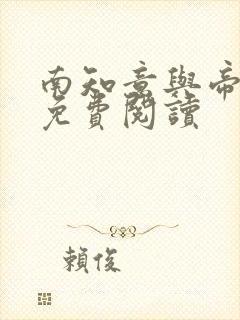 南知意與帝
免費閱讀
賴俊